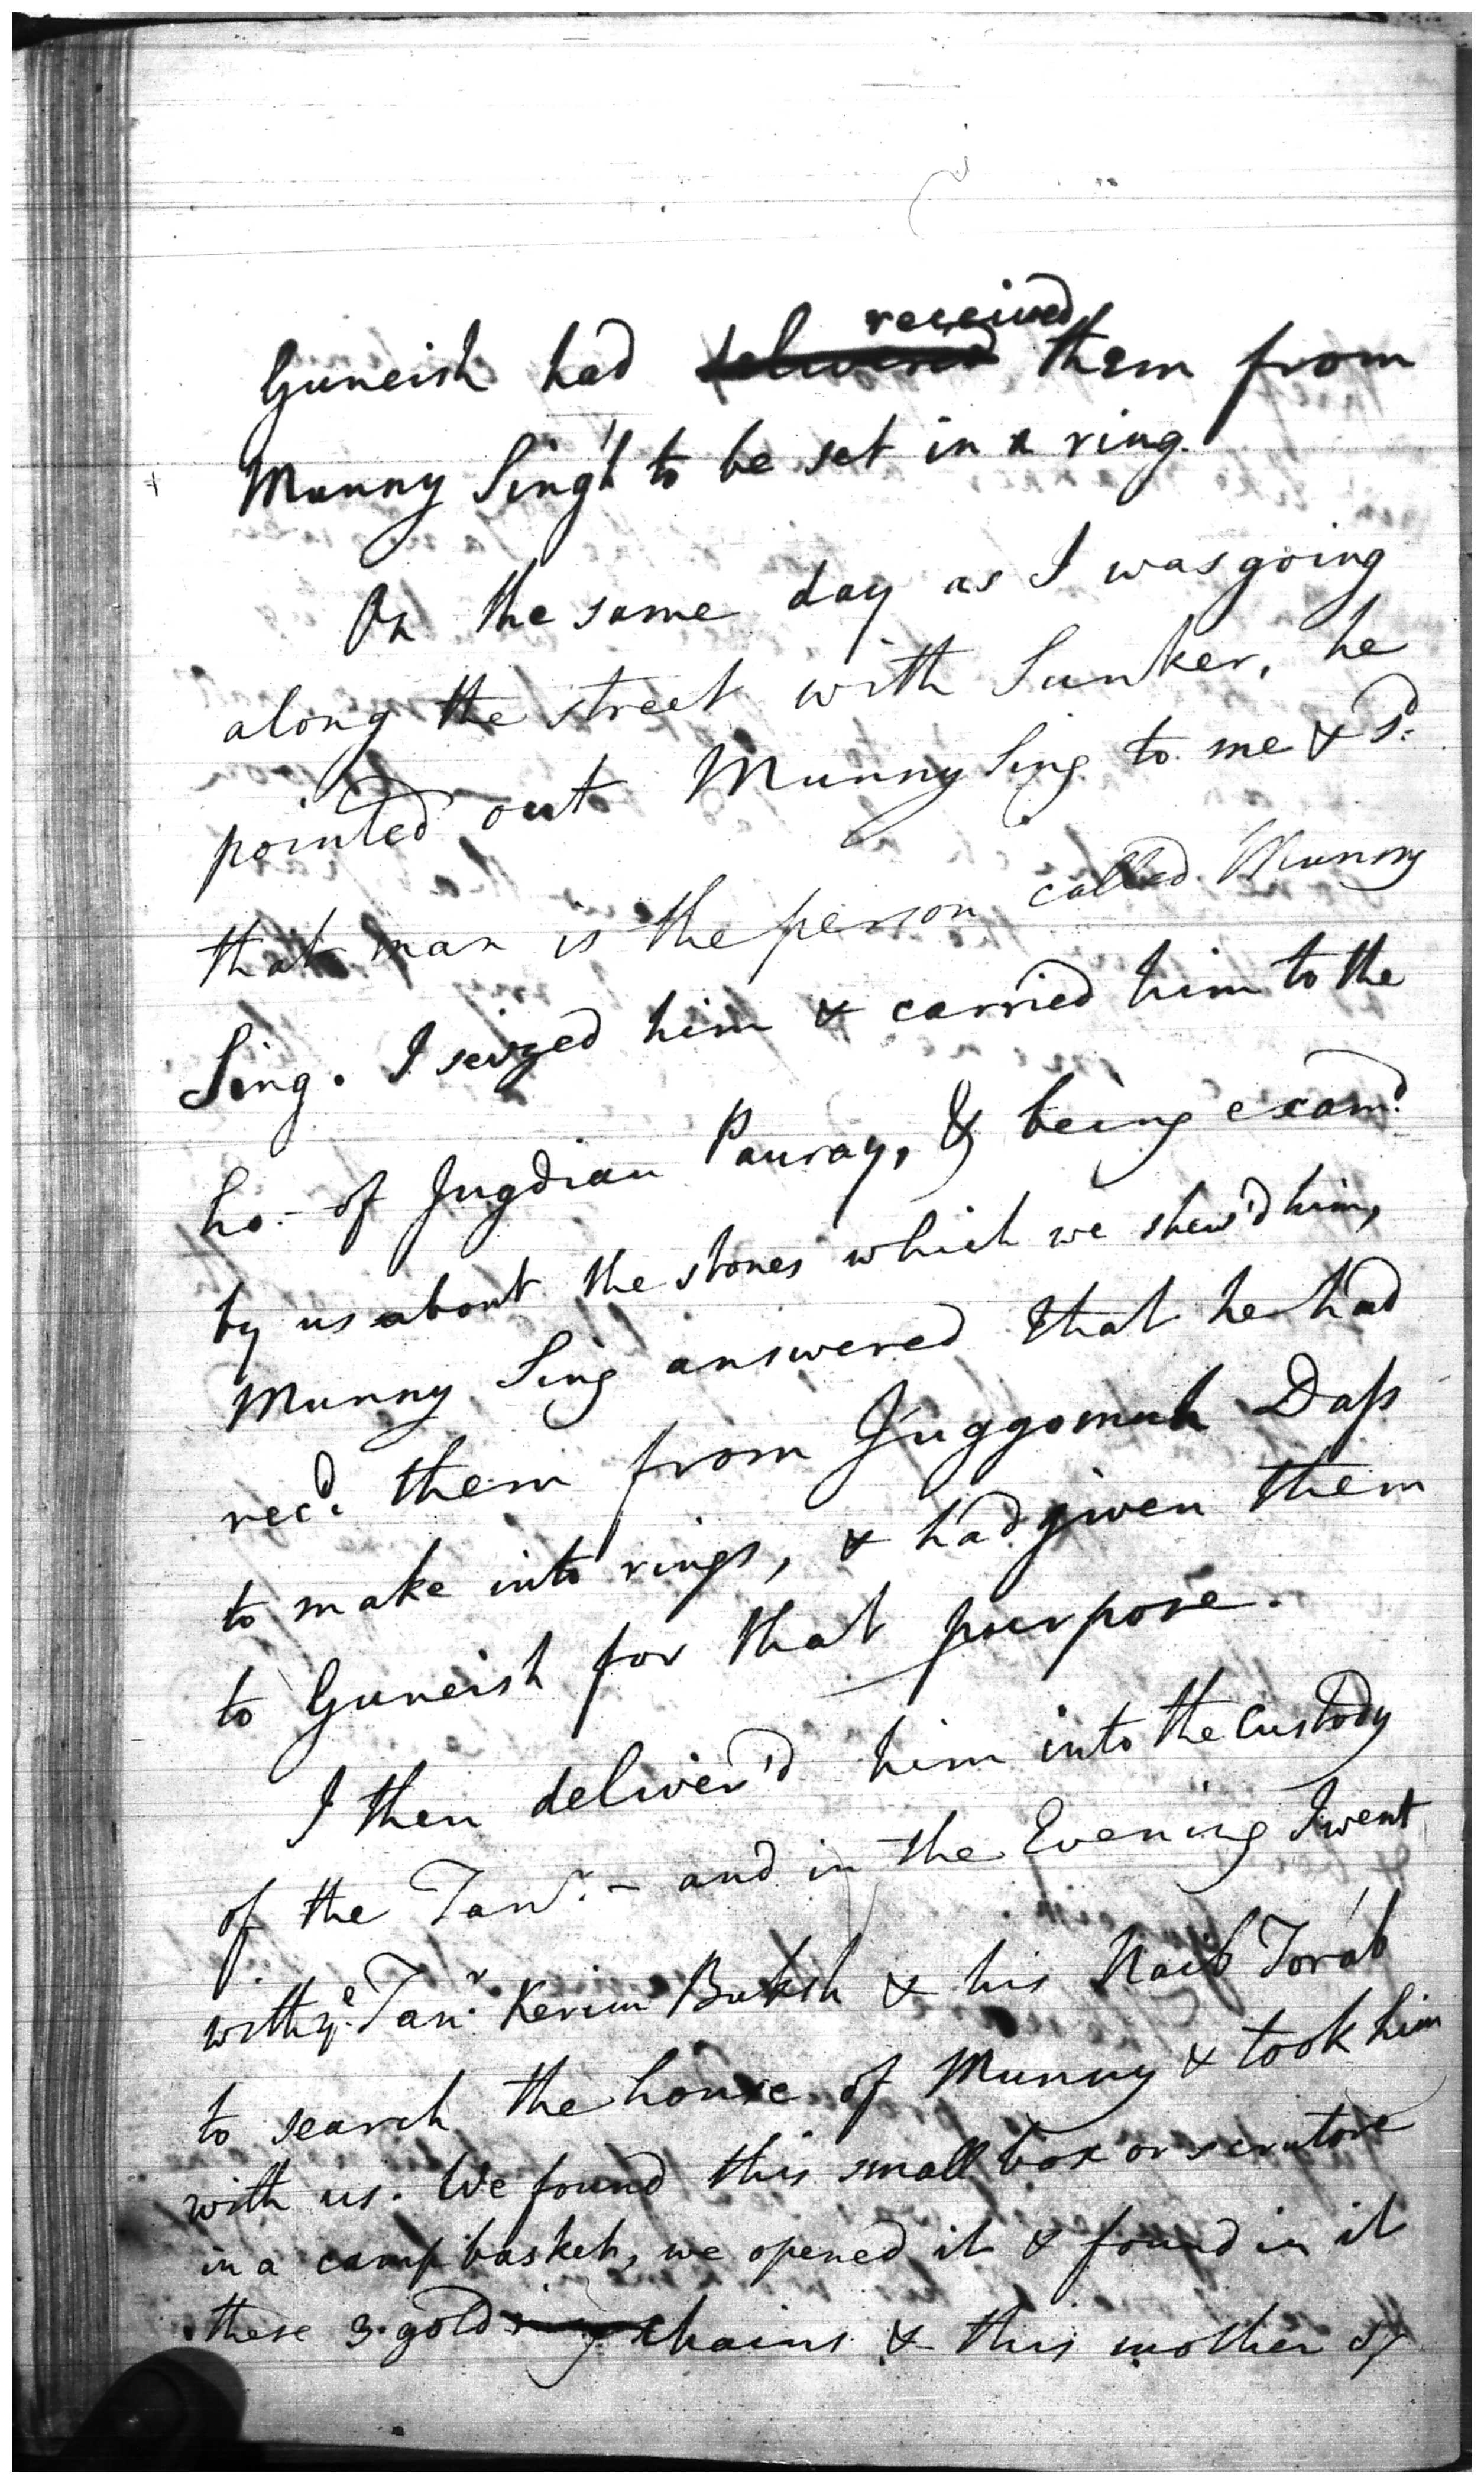 Guneish had delivered received them from
Munny Singh to be set in a ring.
On the same day as I was going
along the street with Sunker, he
pointed out Munny Sing to me & sd.
that man is the person called Munny
Sing. I seized him & carried him to the
ho. of Jugdian Pauray, & being examd.
by us about the stones which we shew'd him,
Munny Sing answered that he had
recd. them from Juggomuh Dass
to make into rings, & had given them
to Guneish for that purpose.
I then deliver'd him into the Custody
of the Tanr. - and in the Evening I went
with ye. Tanr. Kerim Buksh & his Naib Torab
to search the house of Munny & took him
with us. We found this small box or scrutore
in a camp basket, we opened it & found in it
these 3. gold rings chains & this mother of